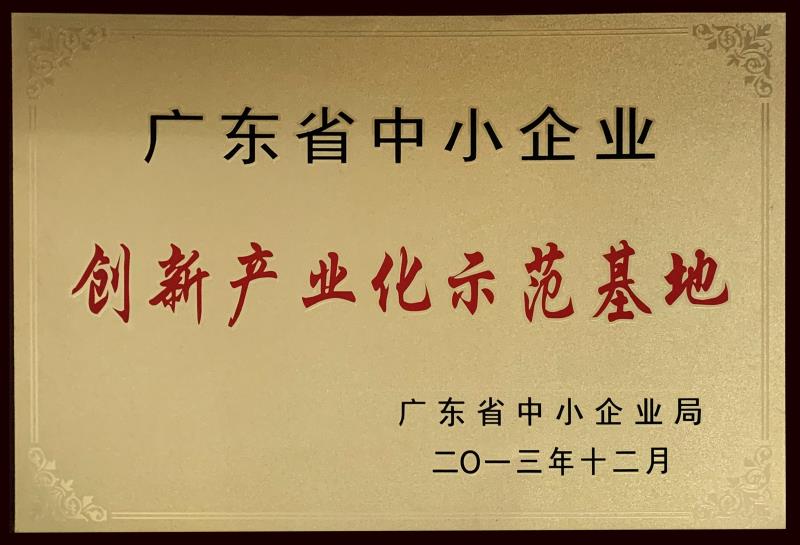 广东省中小企业
创新产业化示范基地
广东省中小企业局
二〇一三年十二月